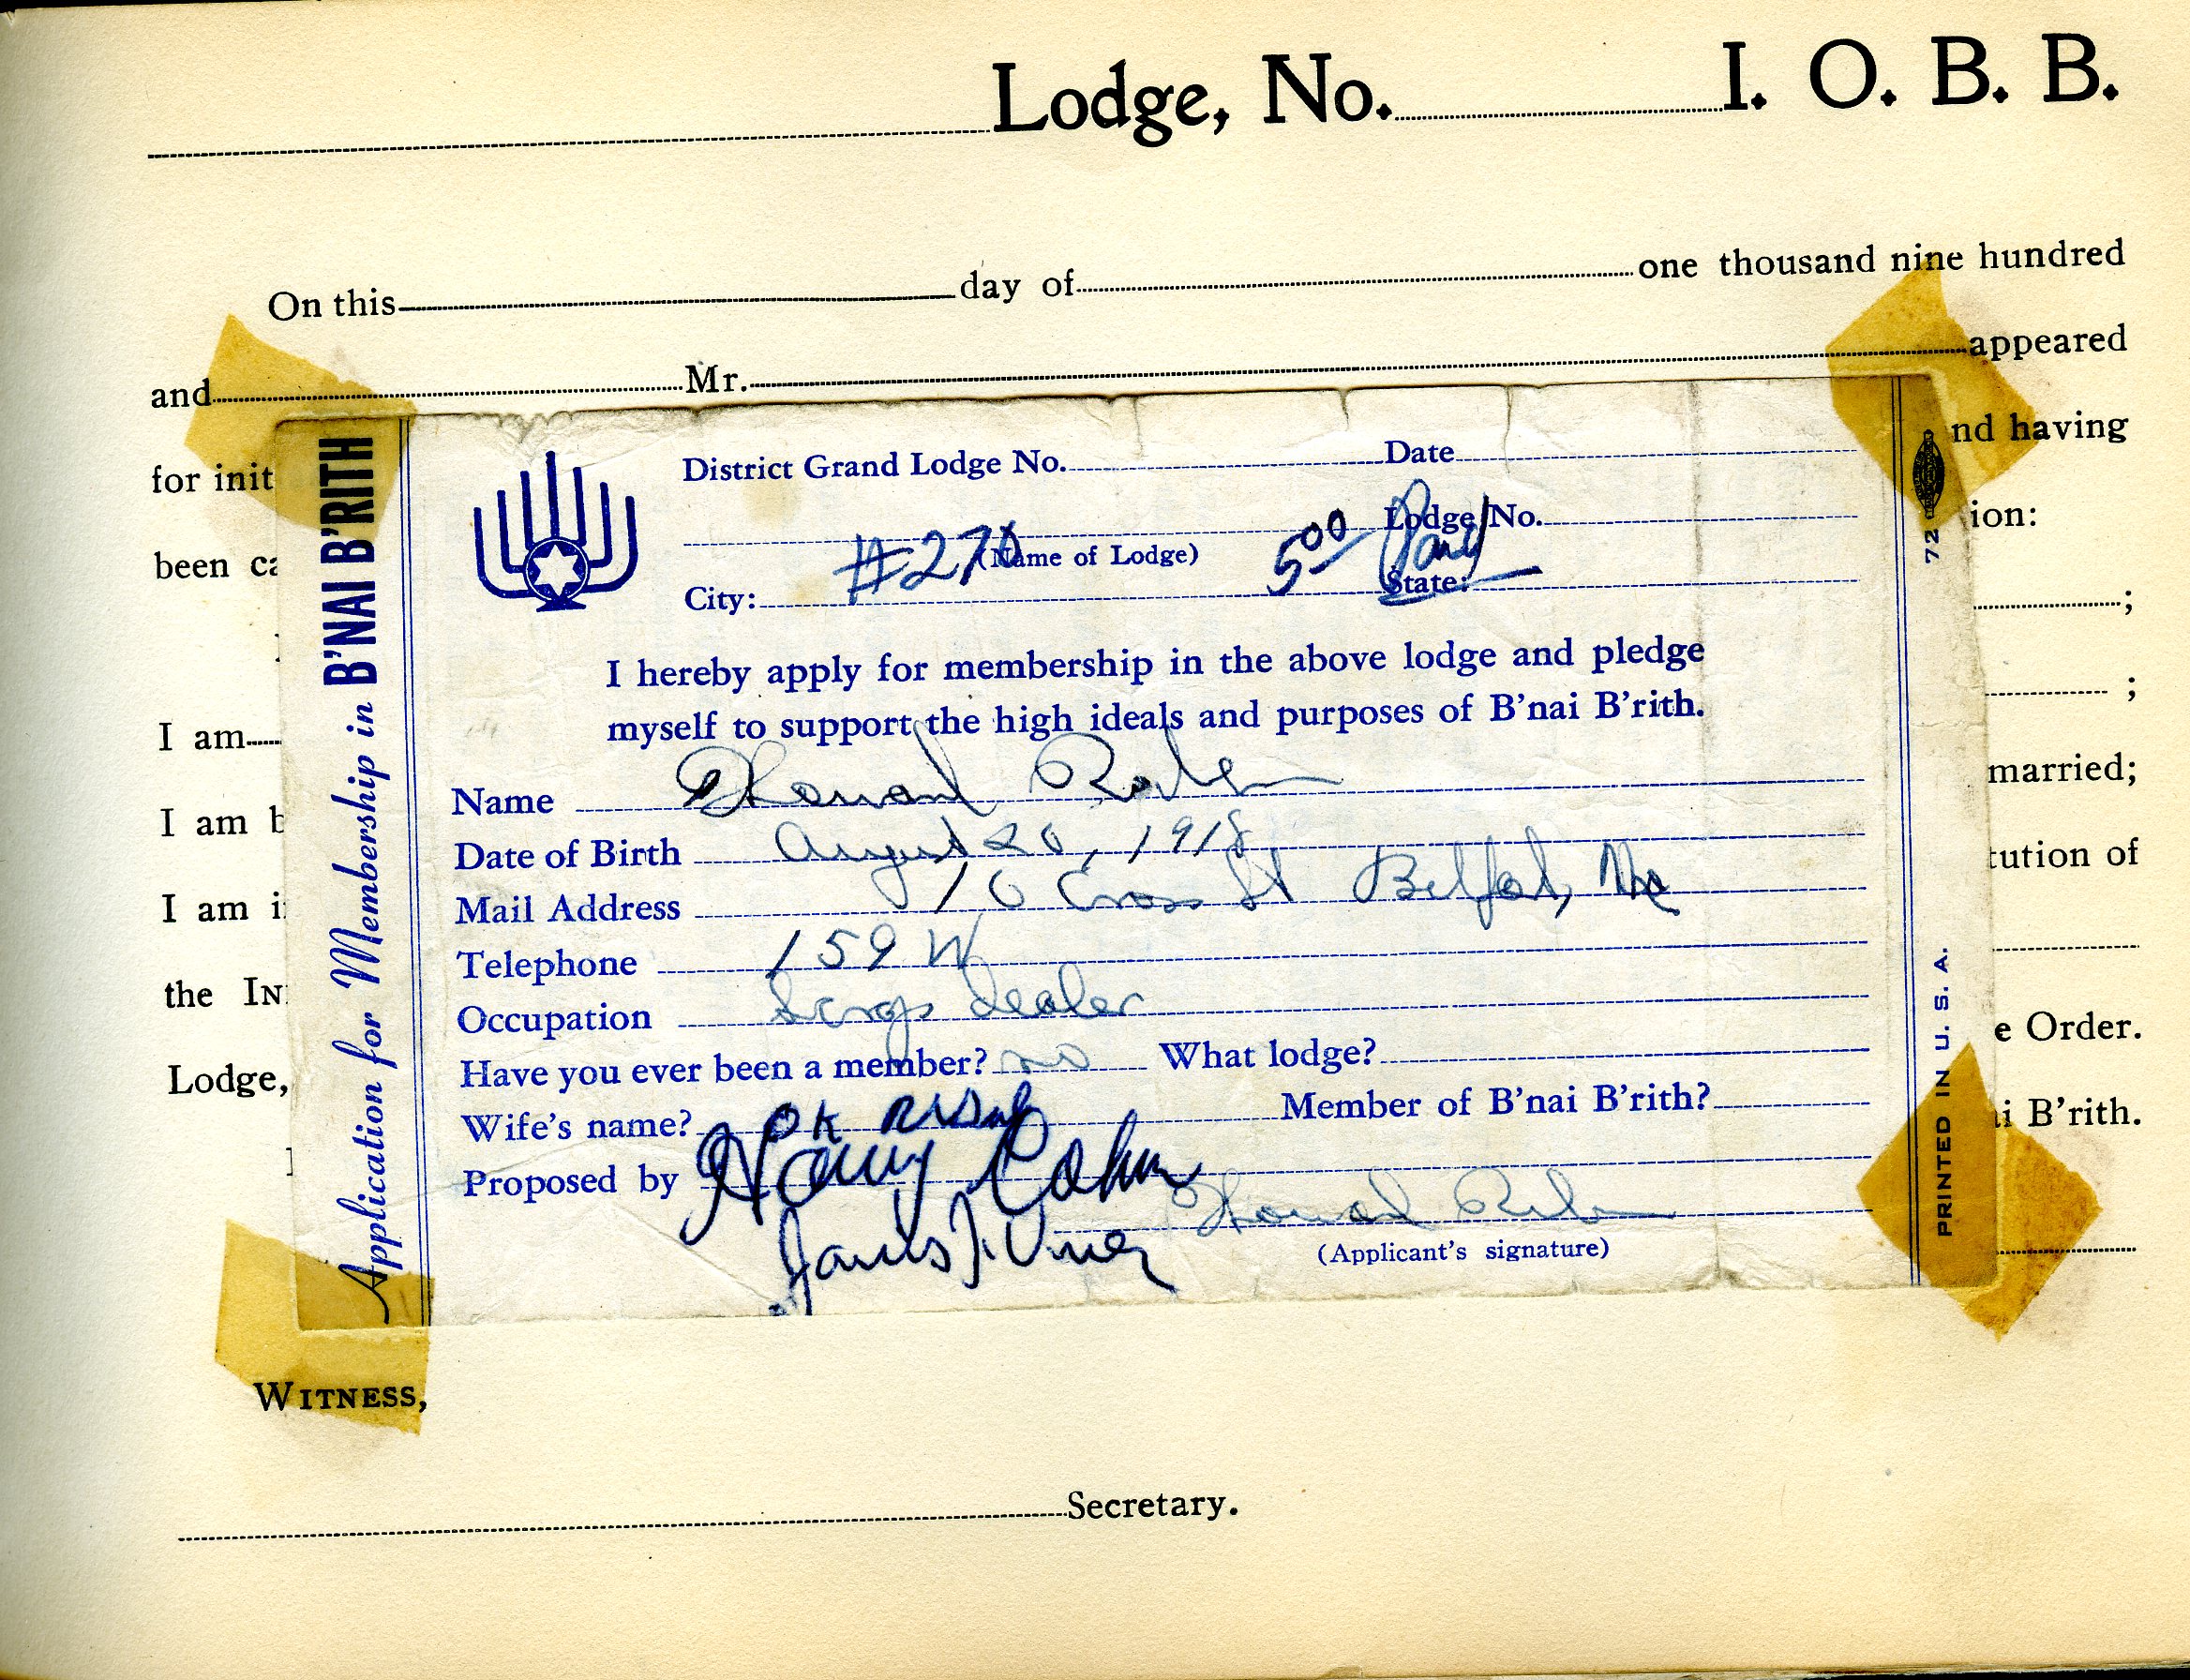 Lodge, No. I. O. B. B.
On this day of one thousand nine hundred
and Mr. appeared
for init nd having
been ca ion:
;
;
I am married;
I am b tution of
I am i
the IN
Lodge, e Order.
i B'rith.
Application for Membership in B'NAI B'RITH
District Grand Lodge No. Date
Lodge No.
#270 5 00 Paid
(Name of Lodge)
City: State:
I hereby apply for membership in the above lodge and pledge
myself to support the high ideals and purposes of B'nai B'rith.
Name Howard
Date of Birth August 20, 1918
Mail Address 10 Cross St Belfast, Me
Telephone 159 W
Occupation Scrap dealer
Have you ever been a member? no What lodge?
Wife's name? OK Member of B'nai B'rith?
Proposed by Harry Cohen
James Howard
(Applicant's signature)
72
PRINTED IN U. S. A.
WITNESS,
Secretary.